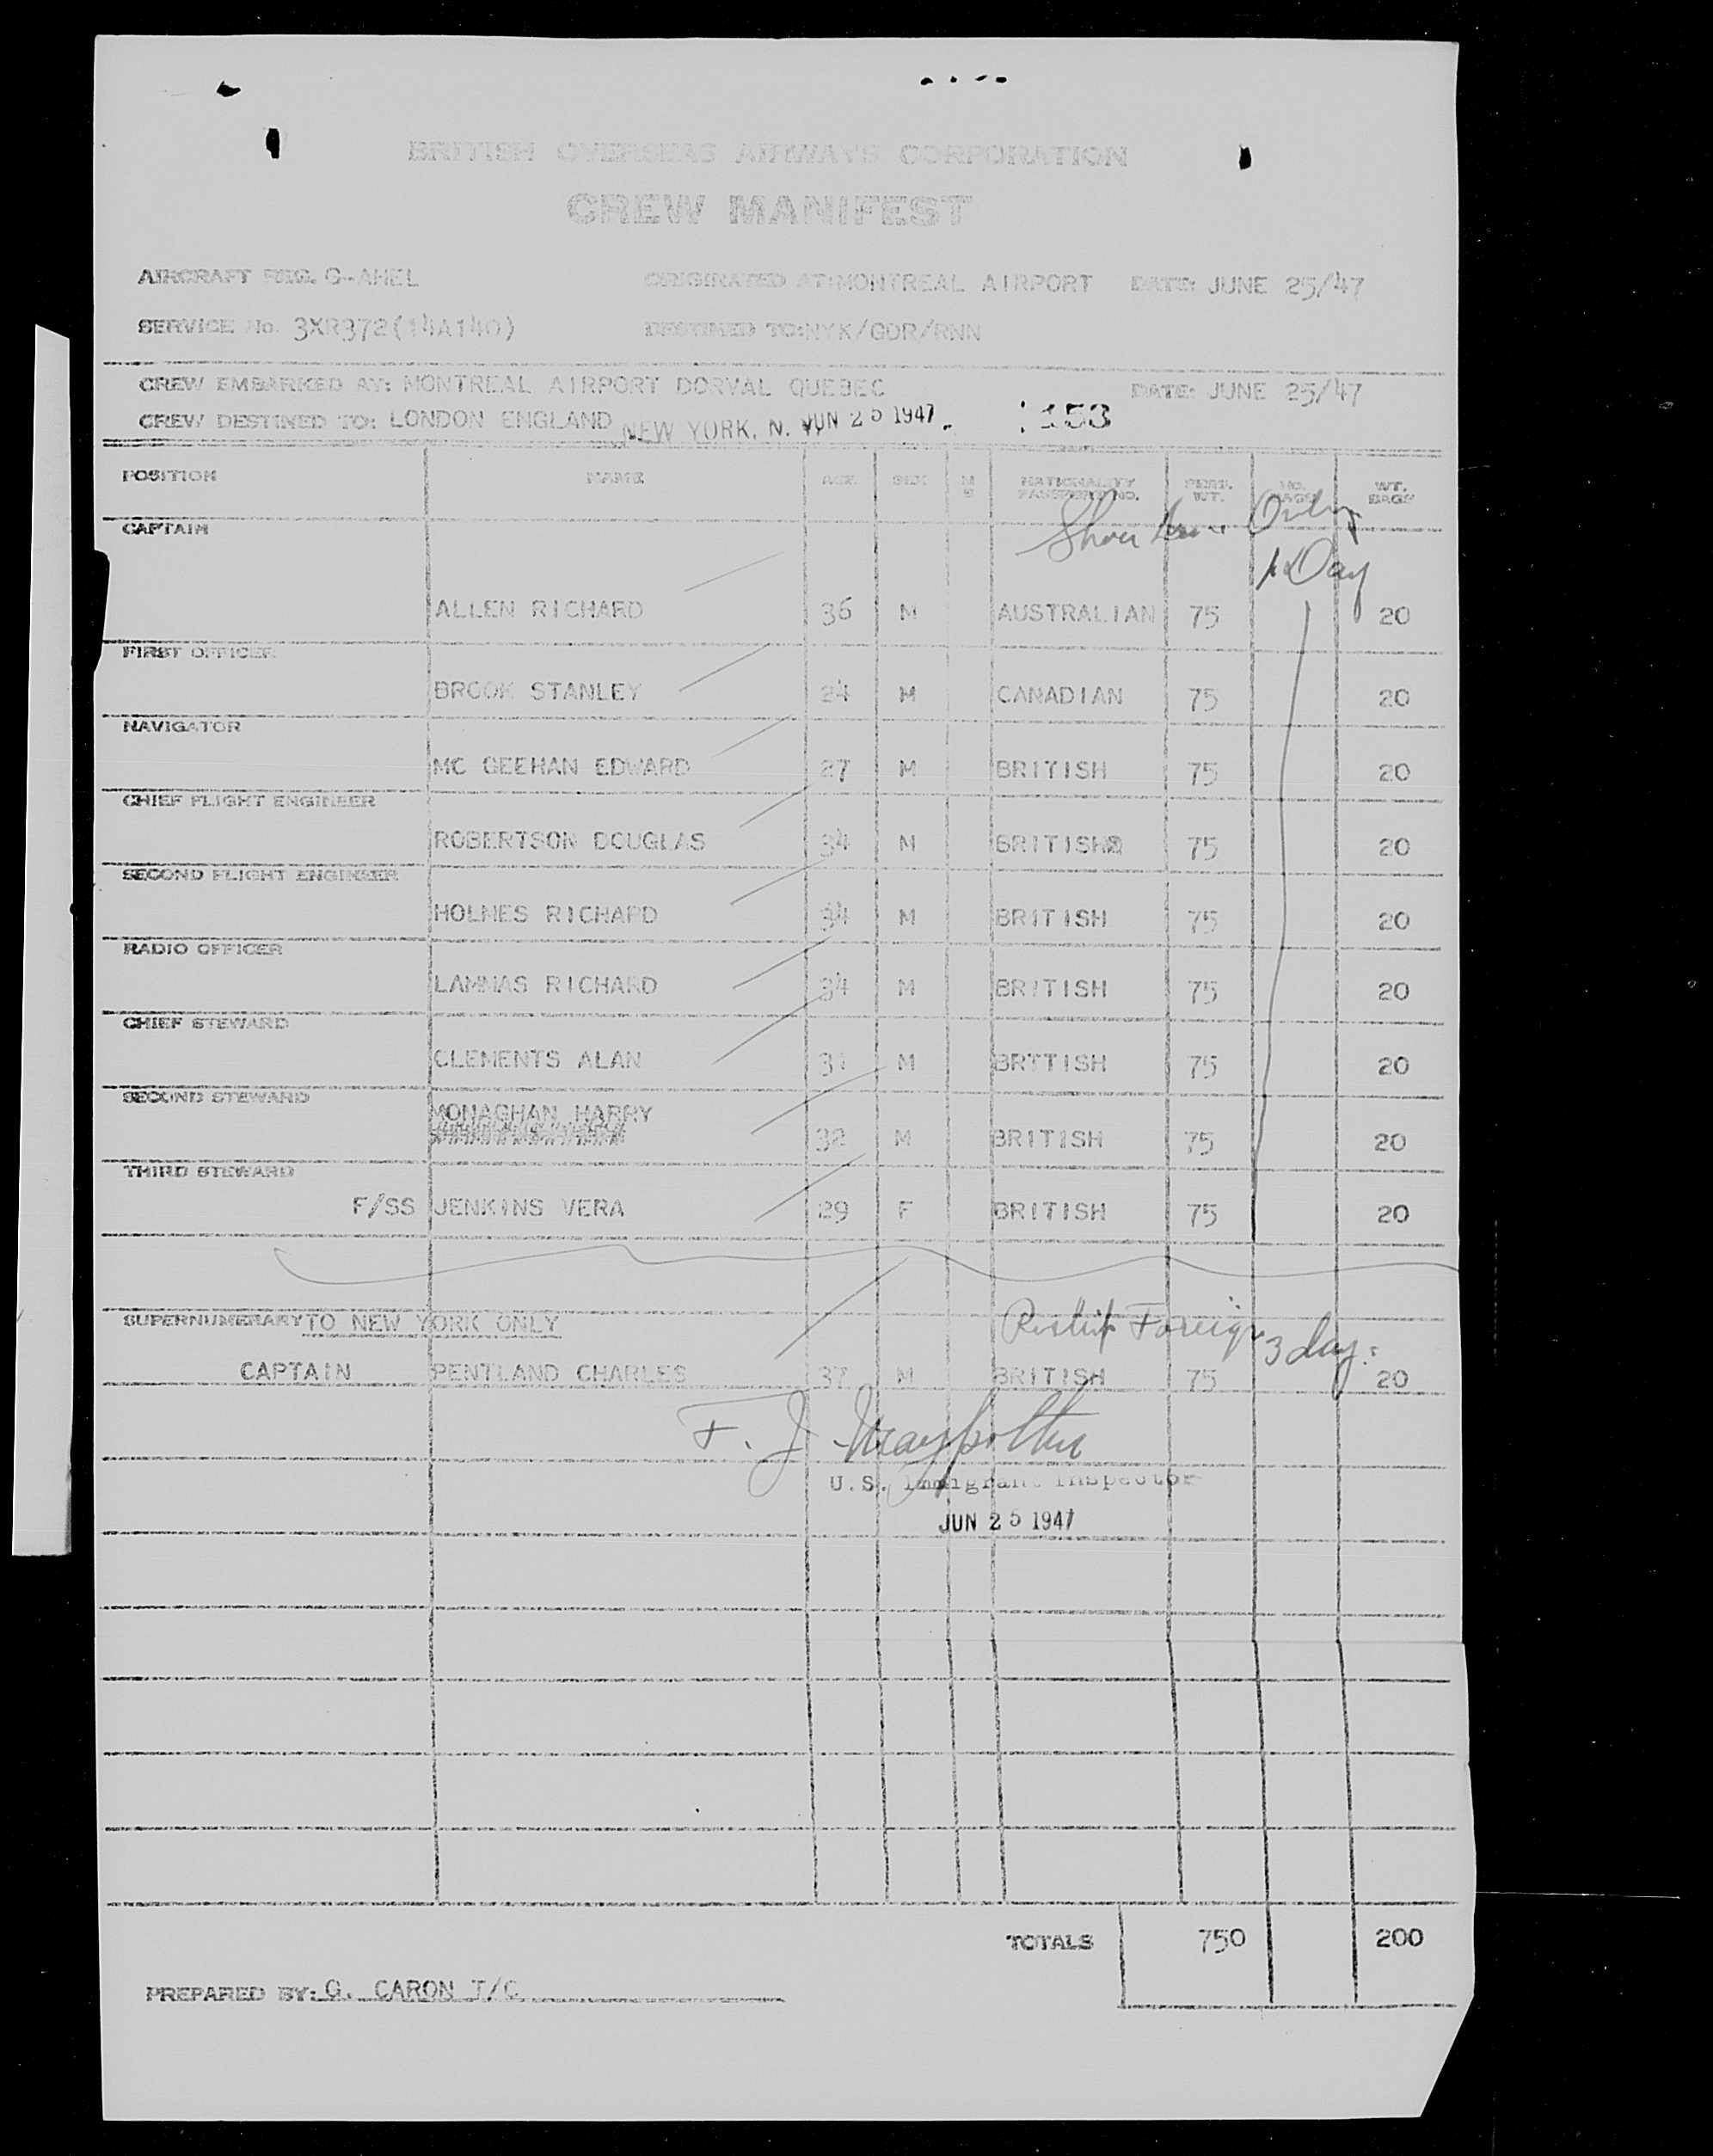 BRITISH OVERSEAS AIRWAYS CORPORATION
CREW MANIFEST
AIRCRAFT REG. G-AHEL ORIGINATED AT: MONTREAL AIRPORT DATE: JUNE 25/47
SERVICE No. 3XR372(14A140) DESTINED TO: NYK/GDR/RNN
CREW EMBARKED AT: MONTREAL AIRPORT DORVAL QUEBEC DATE: JUNE 25/47
CREW DESTINED TO: LONDON ENGLAND NEW YORK, N. Y. JUN 25 1947 153
POSITION NAME AGE SEX M S NATIONALITY PASSPORT NO. PERS. WT. NO. BAGS WT. BAGS
Shore Leave Only
CAPTAIN
1 Day
ALLEN RICHARD 36 M AUSTRALIAN 75 20
FIRST OFFICER
BROOK STANLEY 24 M CANADIAN 75 20
NAVIGATOR
MC GEEHAN EDWARD 27 M BRITISH 75 20
CHIEF FLIGHT ENGINEER
ROBERTSON DOUGLAS 34 M BRITISH 75 20
SECOND FLIGHT ENGINEER
HOLMES RICHARD 34 M BRITISH 75 20
RADIO OFFICER
LAMMAS RICHARD 34 M BRITISH 75 20
CHIEF STEWARD
CLEMENTS ALAN 31 M BRTTISH 75 20
SECOND STEWARD
MONAGHAN HARRY
32 M BRITISH 75 20
THIRD STEWARD
F/SS JENKINS VERA 29 F BRITISH 75 20
SUPERNUMERARY TO NEW YORK ONLY
Reship Foreign 3 days
CAPTAIN PENTLAND CHARLES 37 M BRITISH 75 20
F. J.
U.S. Immigrant Inspector
JUN 25 1947
TOTALS 750 200
PREPARED BY: G. CARON T/C